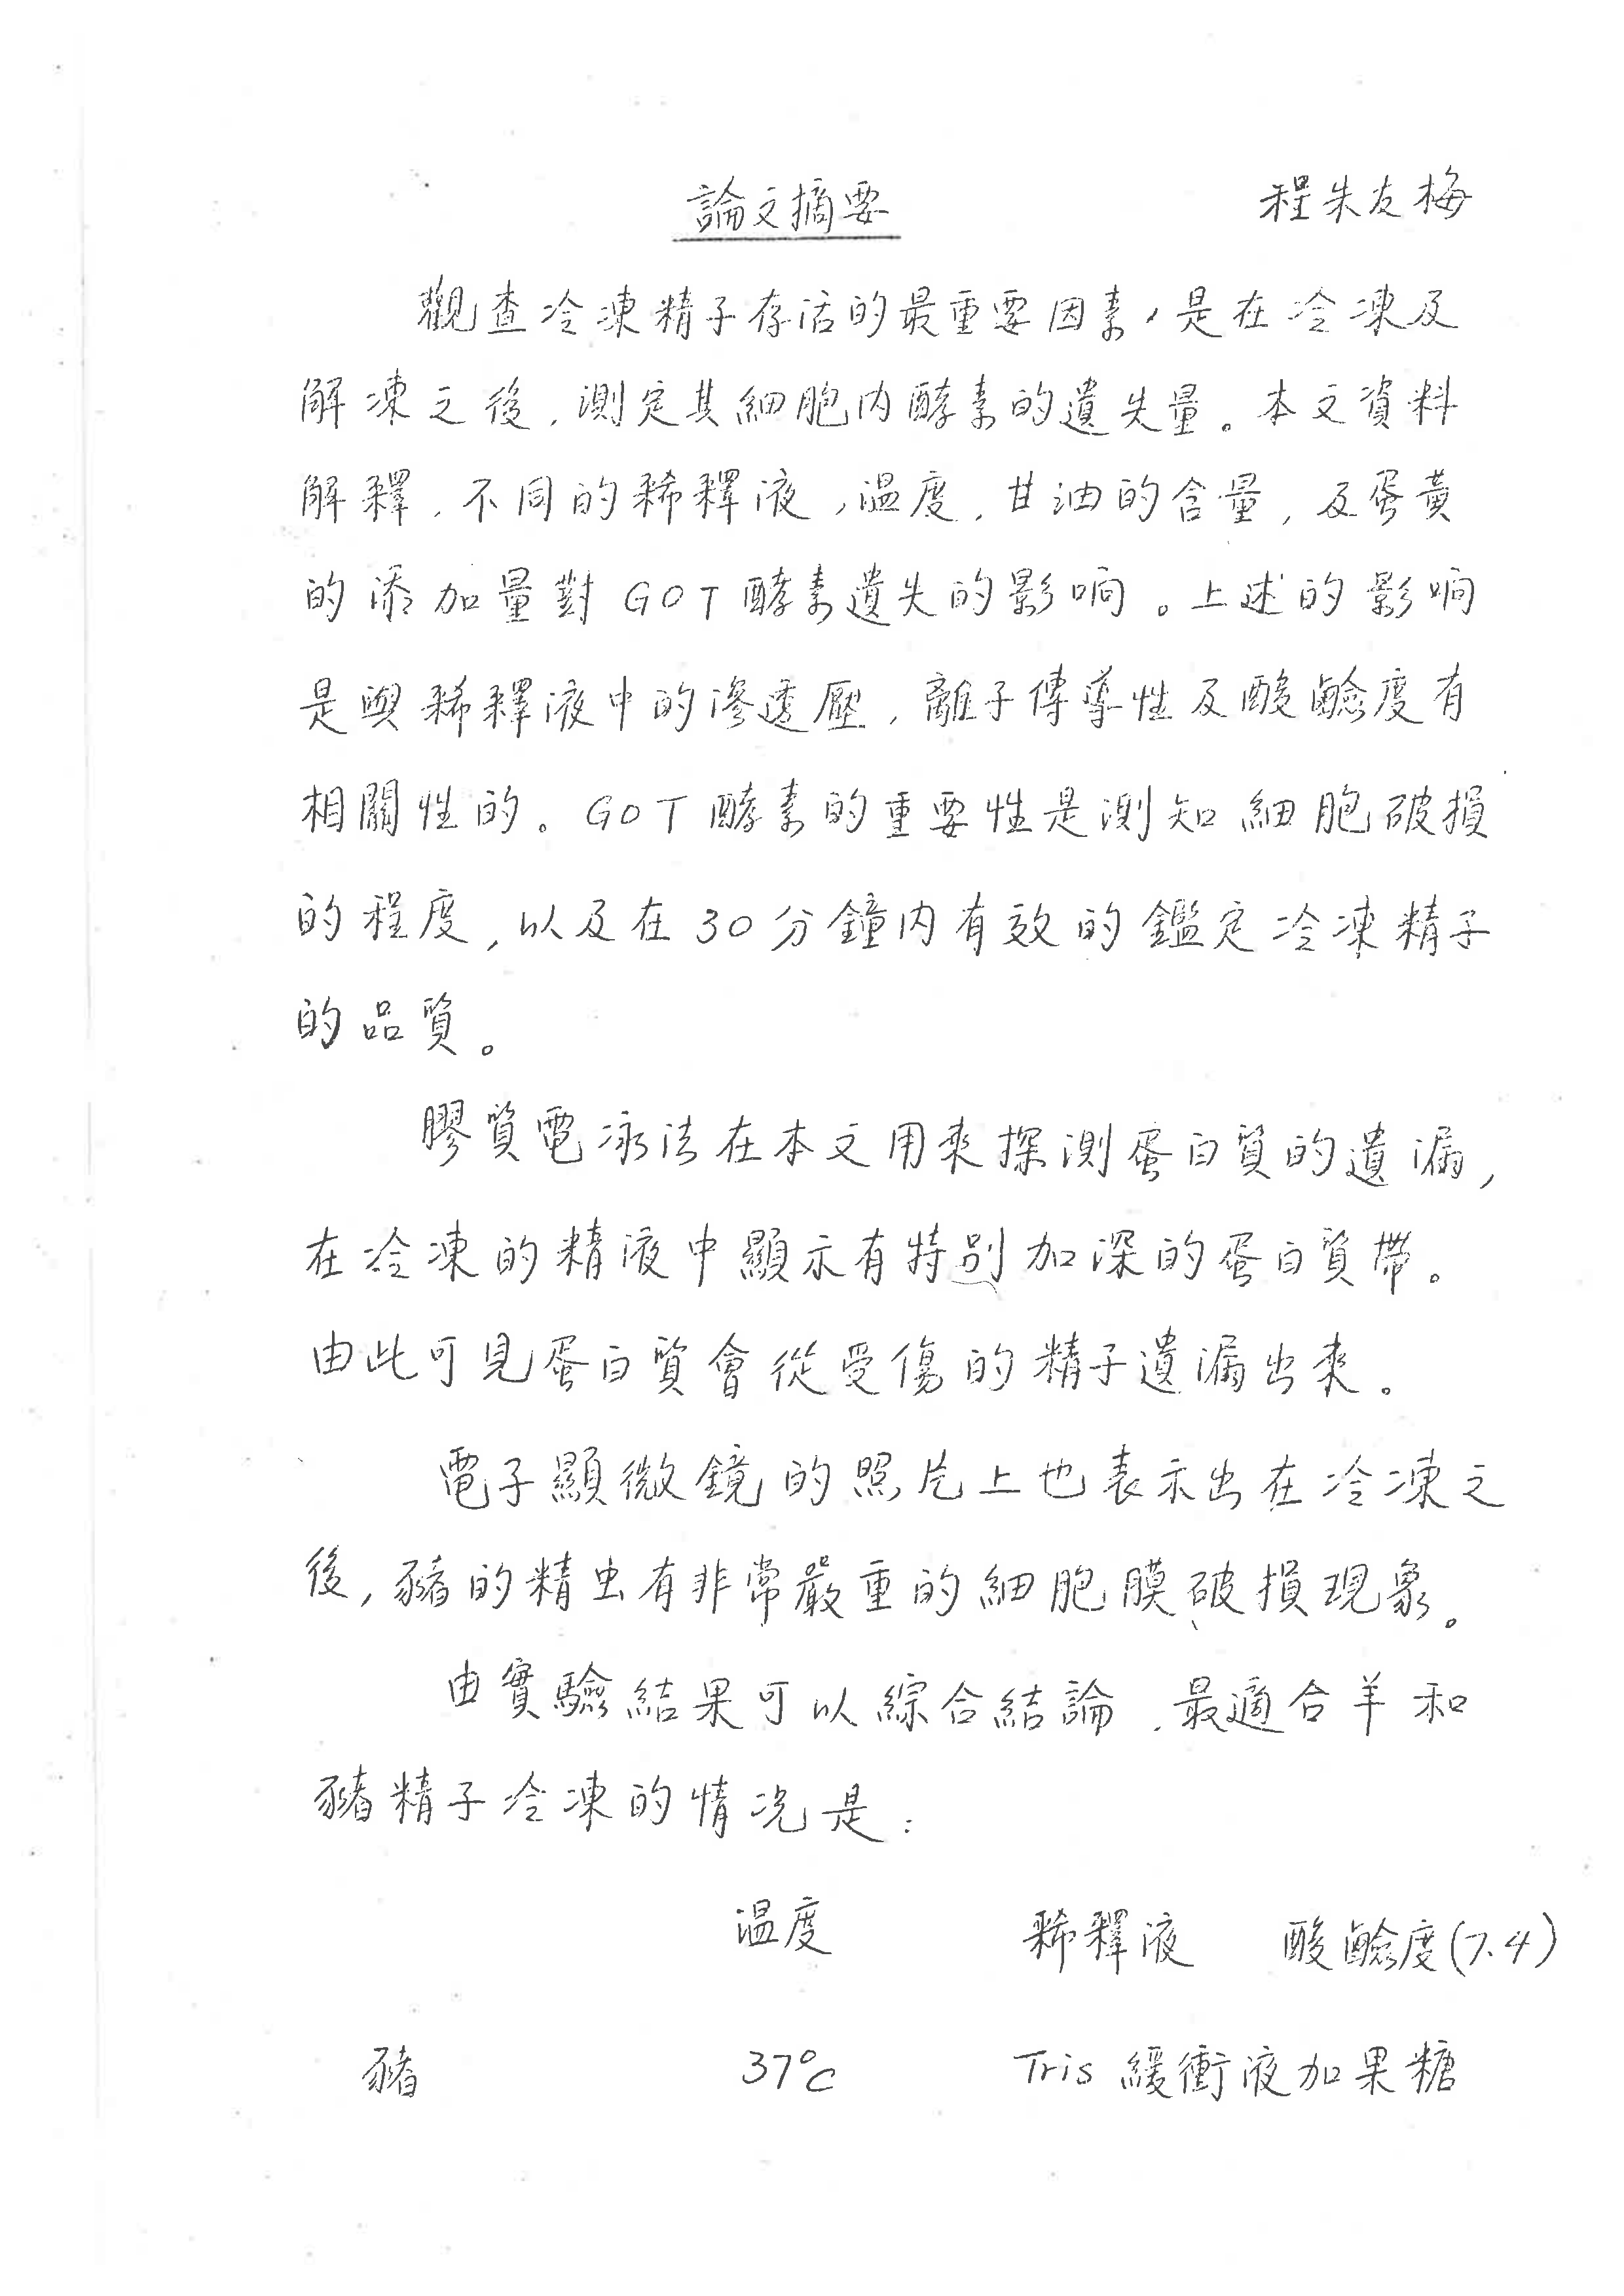 論文摘要
程朱友梅
觀查冷凍精子存活的最重要因素，是在冷凍及
解凍之後，測定其細胞內酵素的遺失量。本文資料
解釋，不同的稀釋液，溫度，甘油的含量，及蛋黃
的添加量對GOT酵素遺失的影响。上述的影响
是與稀釋液中的滲透壓，離子傳導性及酸鹼度有
相關性的。GOT酵素的重要性是測知細胞破損
的程度，以及在30分鐘內有效的鑑定冷凍精子
的品質。
膠質電泳法在本文用來探測蛋白質的遺漏，
在冷凍的精液中顯示有特別加深的蛋白質帶。
由此可見蛋白質會從受傷的精子遺漏出來。
電子顯微鏡的照片上也表示出在冷凍之
後，豬的精虫有非常嚴重的細胞膜破損現象。
由實驗結果可以綜合結論，最適合羊和
豬精子冷凍的情況是：
溫度 稀釋液 酸鹼度(7.4)
豬 37°C Tris緩衝液加果糖